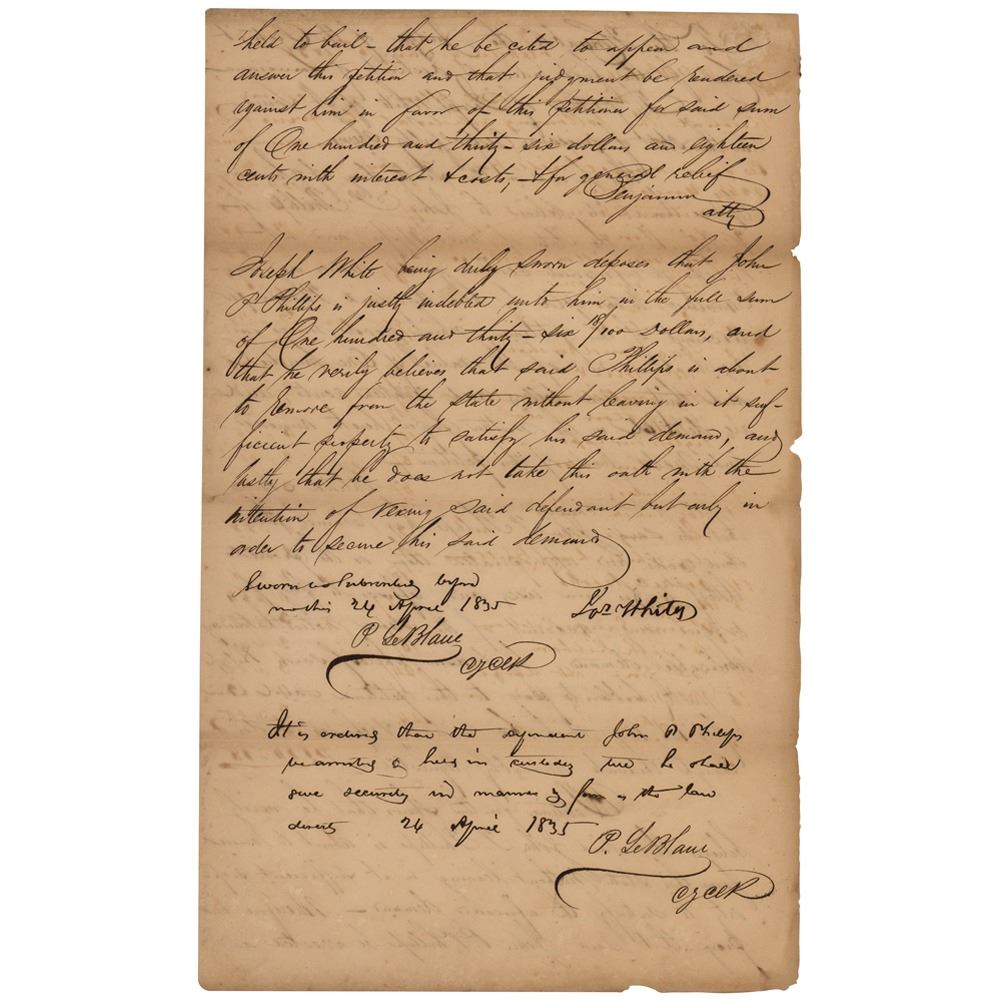 held to bail - that he be cited to appear and
answer this petition and that judgment be rendered
against him in favor of this petitioner for said sum
of One hundred and thirty-six dollars and eighteen
cents with interest & costs, & for general relief
Benjamin
atty
Joseph White being duly sworn deposes that John
P Phillips is justly indebted unto him in the full sum
of One hundred and thirty-six 18/100 Dollars, and
that he verily believes that said Phillips is about
to remove from the state without leaving in it suf-
ficient property to satisfy his said demand, and
lastly that he does not take this oath with the
intention of vexing said defendant but only in
order to secure his said demand
Sworn to & subscribed before
me this 24 April 1835
Jos White
P. LeBlanc
It is ordered that the defendant John P Philips
be arrested & held in custody till he shall
give security in manner & form as the law
directs 24 April 1835
P. LeBlanc